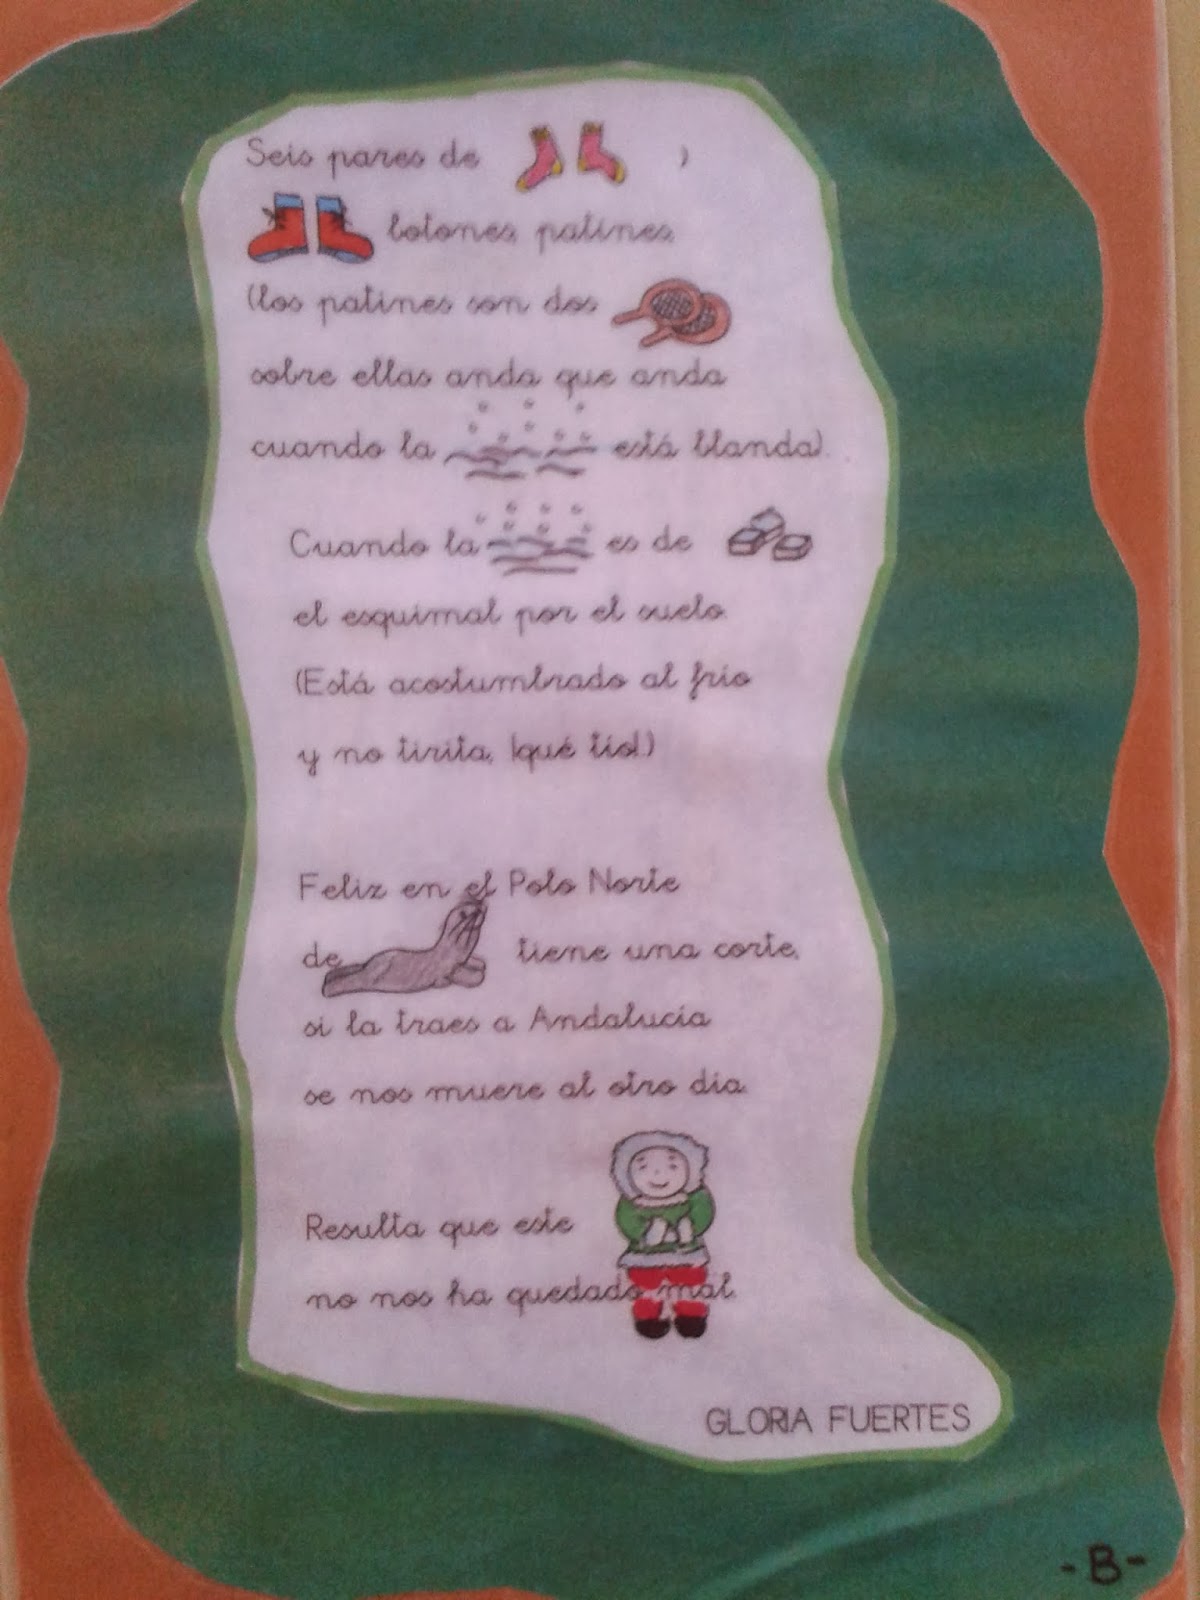 Seis pares de ,
botones, patines,
(los patines son dos
sobre ellas anda que anda
cuando la está blanda).
Cuando la es de
el esquimal por el suelo.
(Está acostumbrado al frío
y no tirita, ¡qué tío!.)
Feliz en el Polo Norte
de tiene una corte,
si la traes a Andalucía
se nos muere al otro día.
Resulta que este
no nos ha quedado mal.
GLORIA FUERTES
-B-